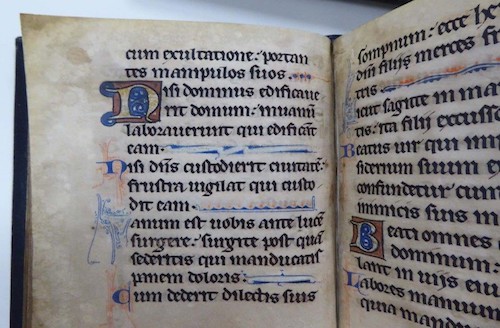 cum exultatione: portan
tes manipulos suos
Nisi dominus edificaue
rit domum: inuanū
laborauerunt qui edificāt
eam
Nisi dn̄s custodierit ciuitatē:
frustra uigilat qui custo
dit eam
Vanum est uobis ante lucē
surgere: surgite post quā
sederitis qui manducatis
panem doloris
Cum dederit dilectis suis
sompnum: ecce he
dn̄i filij merces fr
tris
Sicut sagitte in ma
tis: ita filij excusso
Beatus uir qui imp
siderium suum e
confundetur cum
inimicis suis in
Beati omnes
dominum:
lant in uijs eiu
Labores manuum
quia mandu